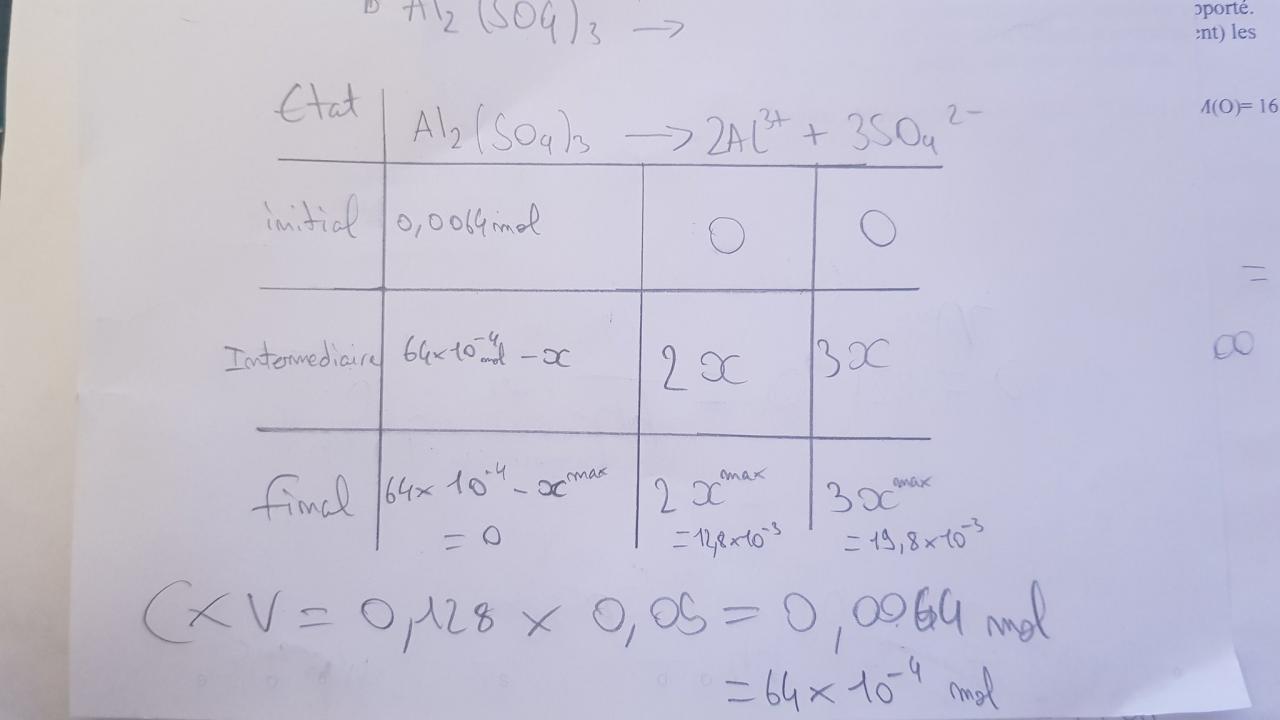 Al₂(SO₄)₃ →
pporté.
ent) les
M(O)= 16
Etat Al₂(SO₄)₃ → 2Al³⁺ + 3SO₄²⁻
initial 0,0064 mol 0 0
=
Intermediaire 64×10⁻⁴ mol - x 2x 3x
final 64× 10⁻⁴ - xᵐᵃˣ 2 xᵐᵃˣ 3xᵐᵃˣ
= 0 =12,8×10⁻³ = 19,8×10⁻³
C×V = 0,128 × 0,05 = 0,0064 mol
= 64 × 10⁻⁴ mol